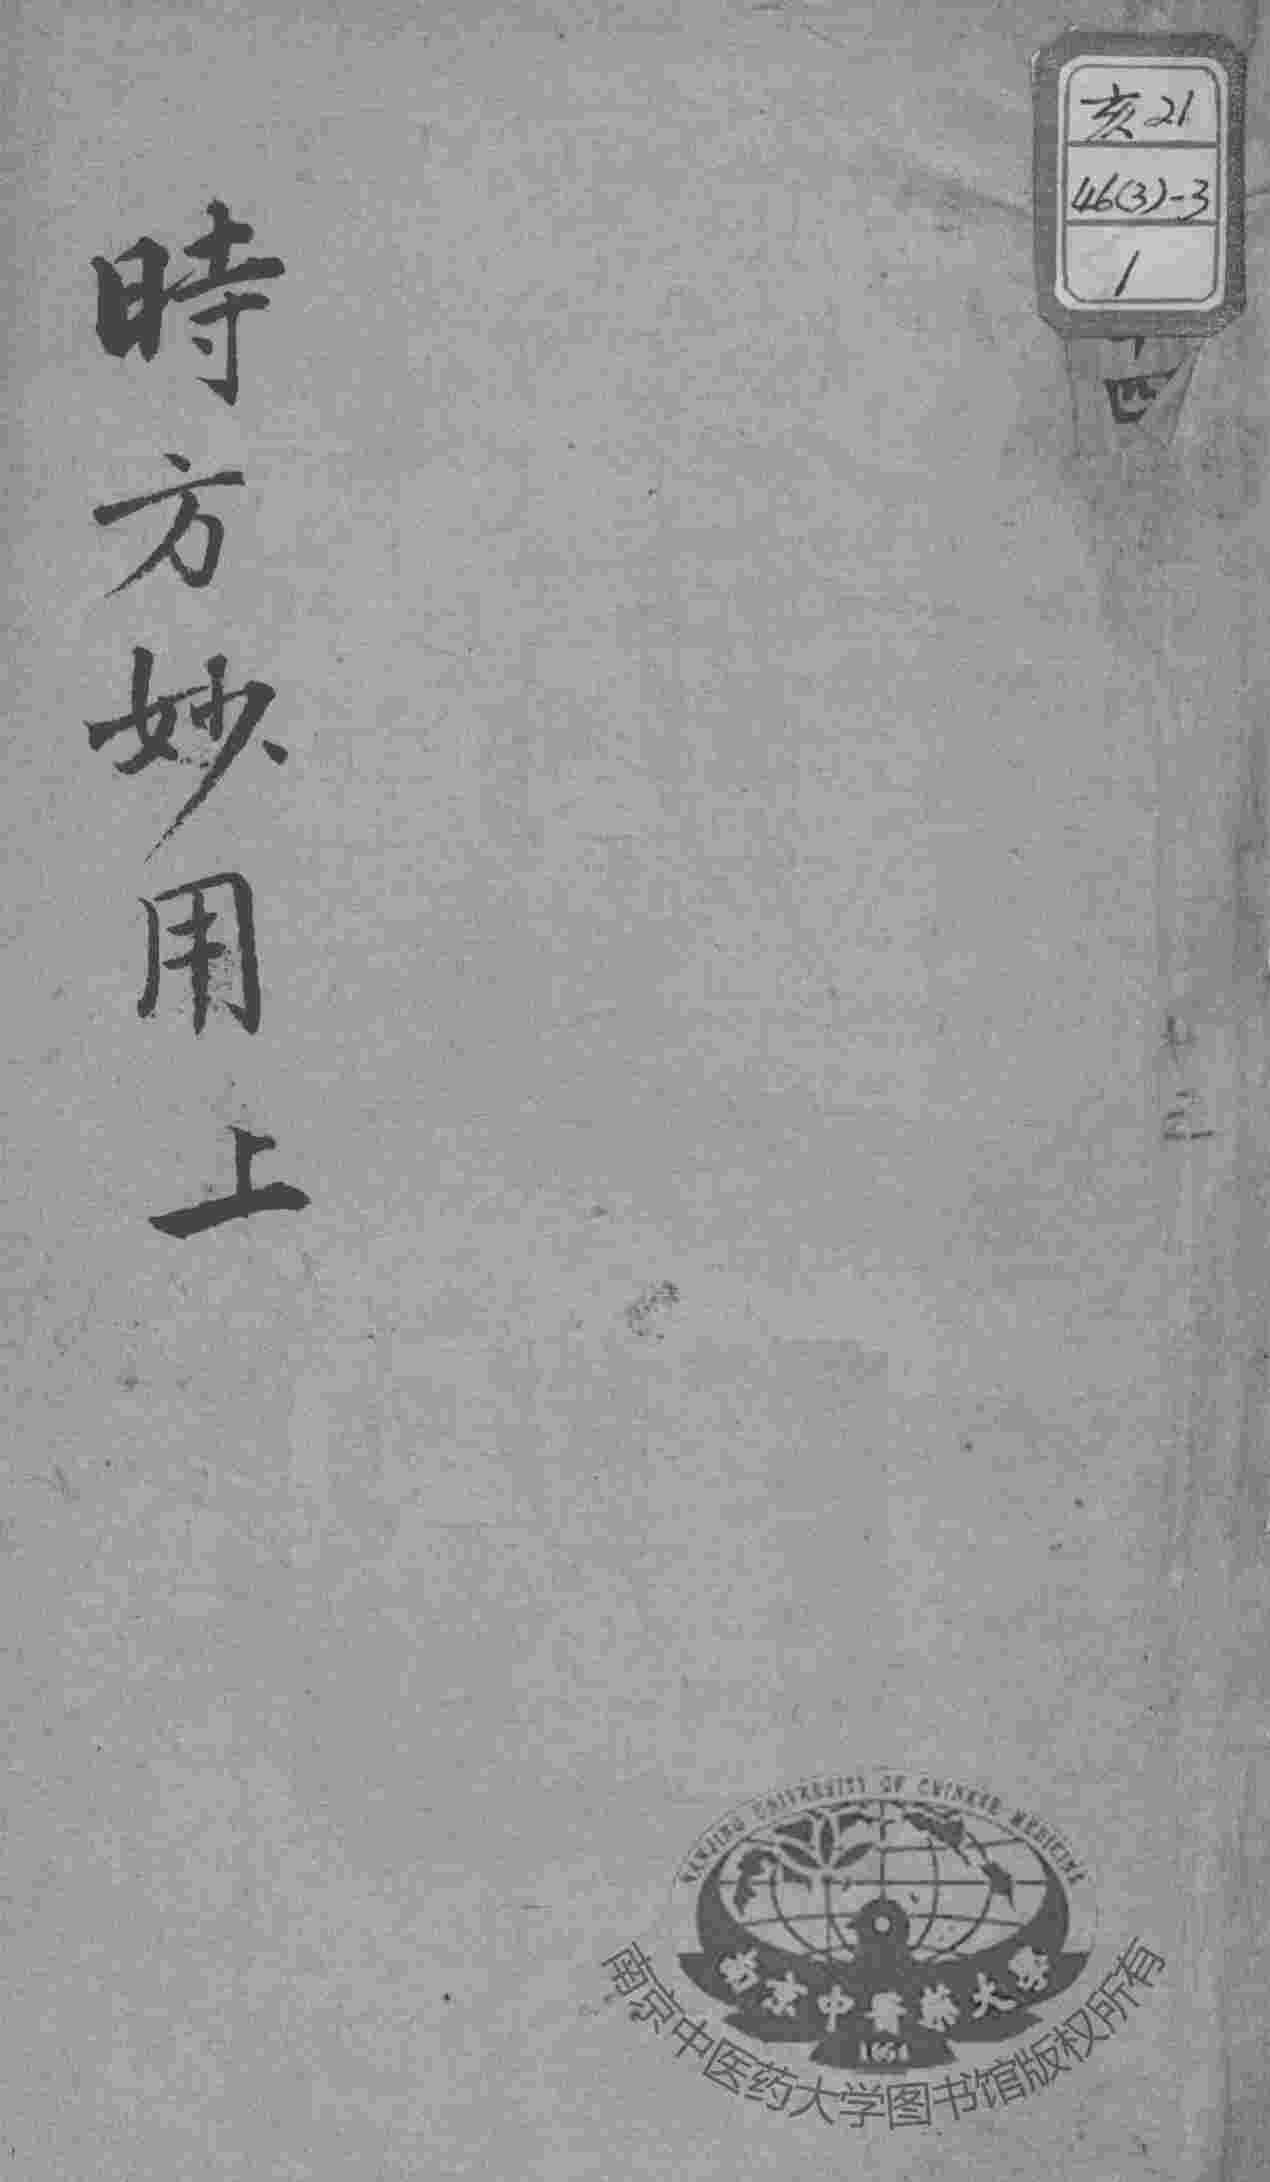 亥21
46(3)-3
1
十四
時方妙用上
NANJING UNIVERSITY OF CHINESE MEDICINE
南京中醫藥大學
南京中医药大学图书馆版权所有